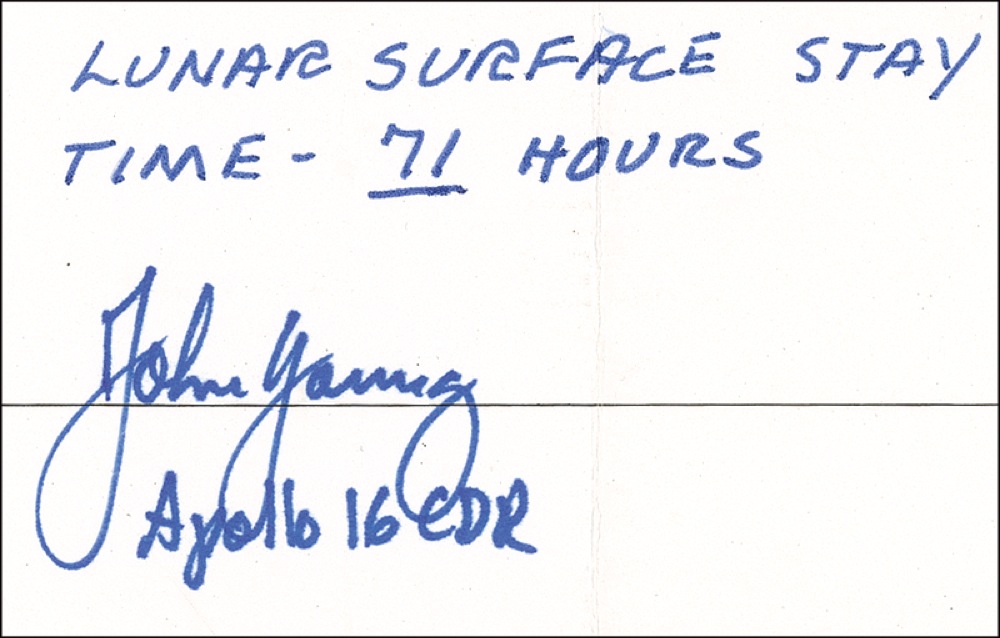 LUNAR SURFACE STAY
TIME - 71 HOURS
John Young
Apollo 16 CDR